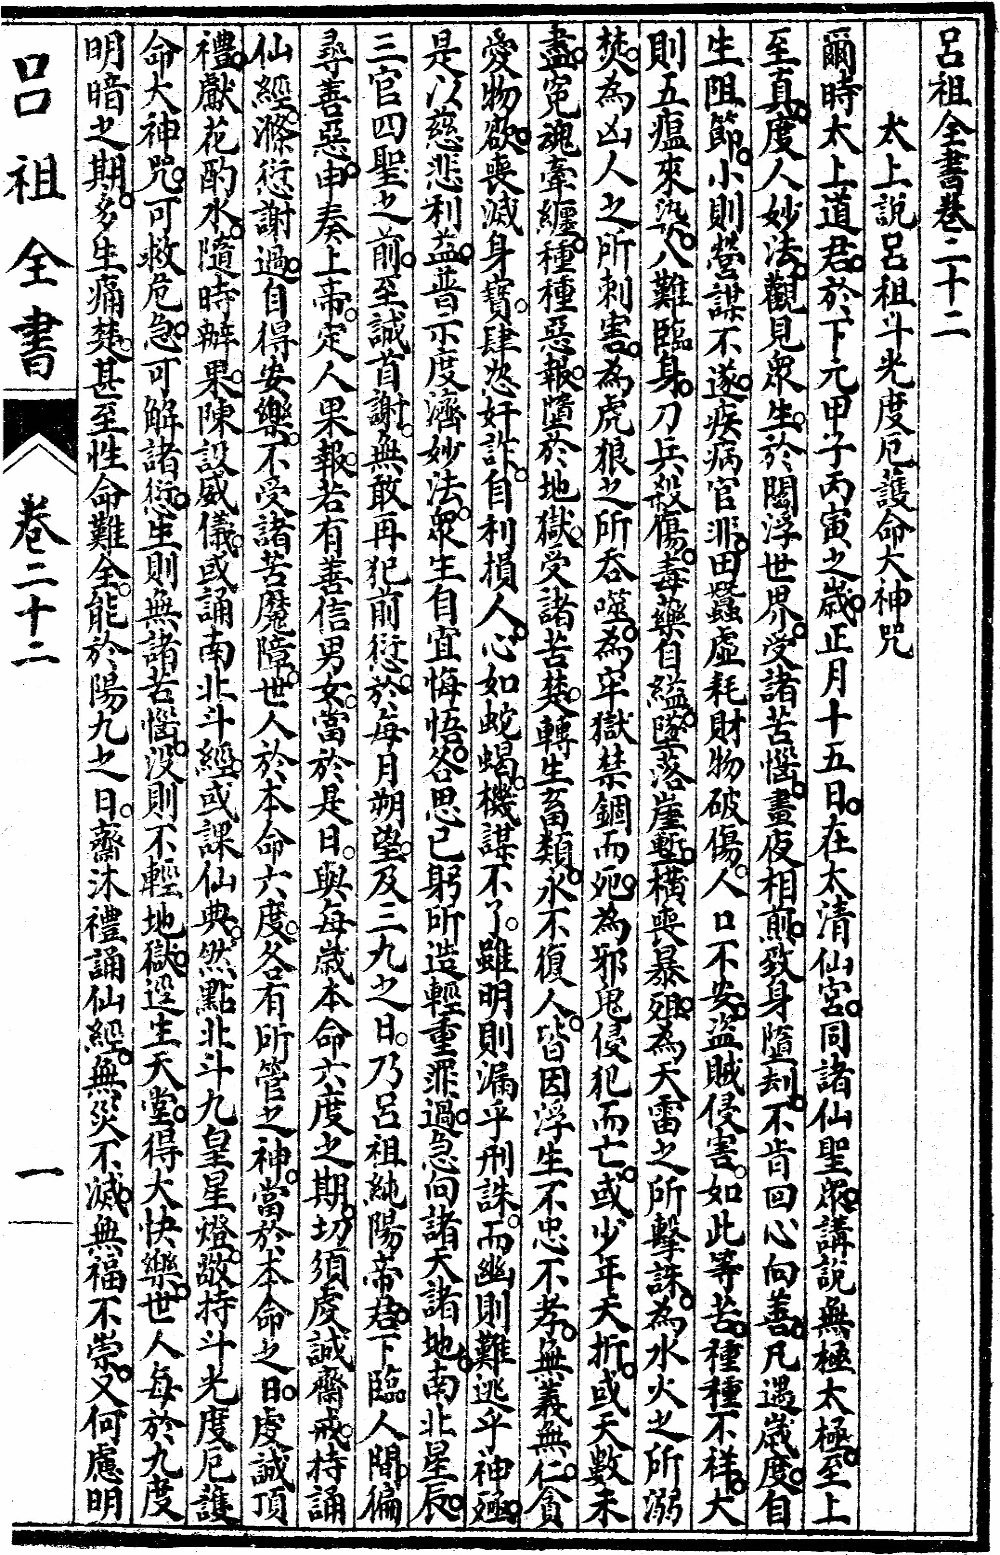 呂祖全書卷二十二
太上說呂祖斗光度厄護命大神咒
爾時太上道君。於下元甲子丙寅之歲。正月十五日。在太清仙宮。同諸仙聖眾。講說無極太極。至上
至真。度人妙法。觀見眾生。於閻浮世界。受諸苦惱。晝夜相煎。致身墮刧。不肯回心向善。凡遇歲度。自
生阻節。小則營謀不遂。疾病官非。田蠶虛耗。財物破傷。人口不安。盜賊侵害。如此等苦。種種不祥。大
則五瘟來染。八難臨身。刀兵殺傷。毒藥自縊。墜落崖塹。橫喪暴殂。為天雷之所擊誅。為水火之所溺
焚。為凶人之所刺害。為虎狼之所吞噬。為牢獄禁錮而死。為邪鬼侵犯而亡。或少年夭折。或天數未
盡。冤魂牽纏。種種惡報。墮於地獄。受諸苦楚。轉生畜類。永不復人。皆因浮生不忠不孝。無義無仁。貪
愛物欲。喪滅身寶。肆恣奸詐。自利損人。心如蛇蝎。機謀不了。雖明則漏乎刑誅。而幽則難逃乎神殛。
是以慈悲利益。普示度濟妙法。眾生自宜悔悟。各思已躬所造輕重罪過。急向諸天諸地。南北星辰。
三官四聖之前。至誠首謝。無敢再犯前愆。於每月朔望。及三九之日。乃呂祖純陽帝君。下臨人間。徧
尋善惡。申奏上帝。定人果報。若有善信男女。當於是日。與每歲本命六度之期。切須虔誠齋戒。持誦
仙經。滌愆謝過。自得安樂。不受諸苦魔障。世人於本命六度。各有所管之神。當於本命之日。虔誠頂
禮。獻花酌水。隨時辦果。陳設威儀。或誦南北斗經。或課仙典。然點北斗九皇星燈。敬持斗光度厄護
命大神咒。可救危急。可解諸愆。生則無諸苦惱。沒則不輕地獄。逕生天堂。得大快樂。世人每於九度
明暗之期。多生痛楚。甚至性命難全。能於陽九之日。齋沐禮誦仙經。無災不滅。無福不崇。又何慮明
呂祖全書
卷二十二
一